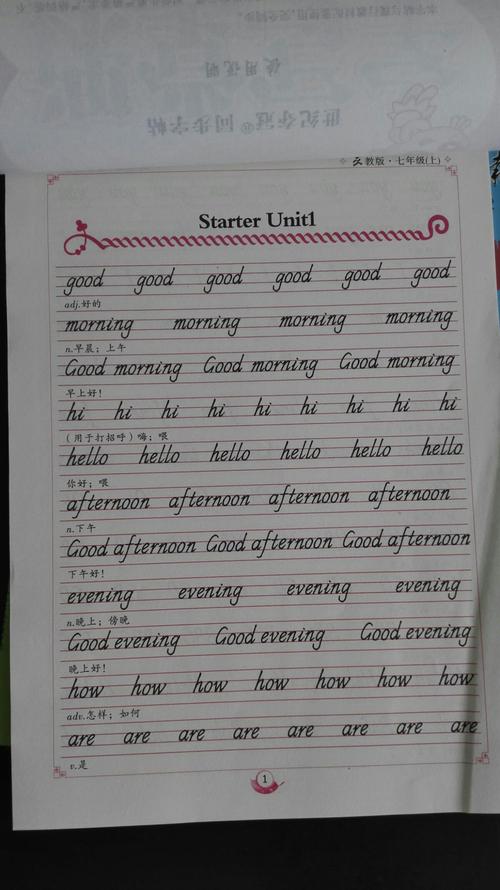 世纪夺冠®同步字帖
使用说明
教版·七年级(上)
Starter Unit1
good good good good good good
adj.好的
morning morning morning morning
n.早晨；上午
Good morning Good morning Good morning
早上好!
hi hi hi hi hi hi hi hi hi
(用于打招呼)嗨；喂
hello hello hello hello hello hello
你好；喂
afternoon afternoon afternoon afternoon
n.下午
Good afternoon Good afternoon Good afternoon
下午好!
evening evening evening evening
n.晚上；傍晚
Good evening Good evening Good evening
晚上好!
how how how how how how how
adv.怎样；如何
are are are are are are are are
v.是
1